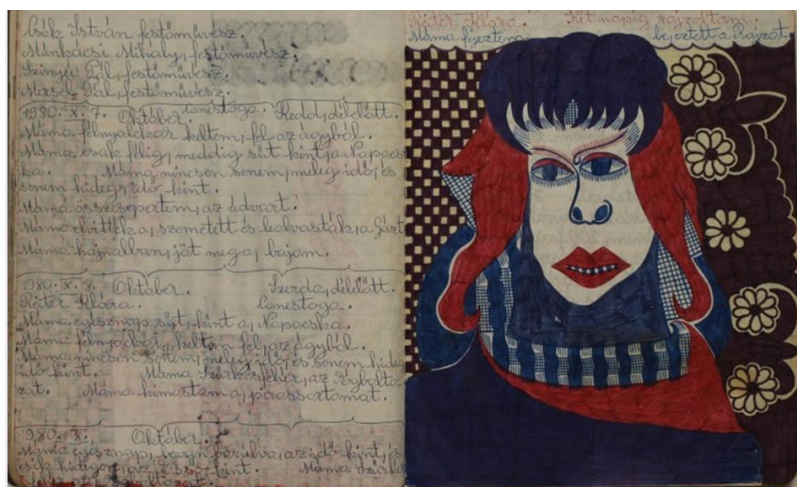 Csók István festőművész.
Munkácsi Mihály, festőművész.
Szinyei Pál, festőművész.
Pál, festőművész.
1980. X. 7. Október. Canestoga. Kedd, délelőtt.
Máma félnyolckor keltem, fel, az ágyból.
Máma csak félig, meddig süt kint, a, Napocs
ka. Máma nincsen senem, meleg idő, és
senem hideg, idő kint.
Máma összesepertem, az udvart.
Máma elvitték a, szemetett és leolvasták, a Gázt
Máma hajnalban, jöt meg a, bajom.
1980. X. 8. Október. Szerda, délelőtt.
Ritér Klára. Canestoga.
Máma egésznap süt, kint a, Napocska.
Máma félnyolckor, keltem, fel, az ágyból.
Máma nincsen senem, meleg, idő, és senem hideg
idő kint. Máma Szürkésfehér, az Égbolto
zat. Máma kimostam a, piros
1980. X. Október.
Máma egésznap, borulva, az idő kint, és
kint. Máma
Ritér Klára. Két napig rajzoltam.
Máma fejeztem bejeztett a Rajzot.